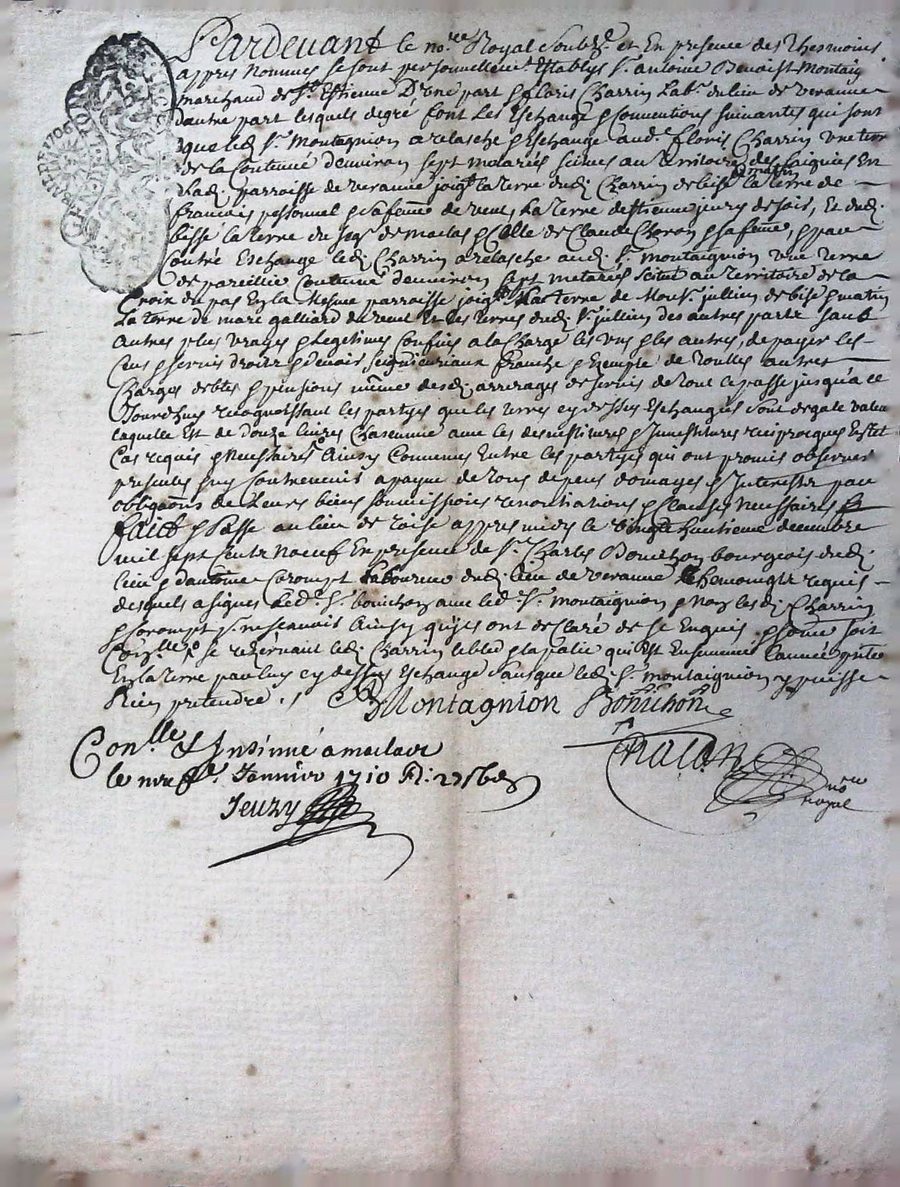 Pardevant le no.re Royal Soubz.e et En presence des Thesmoins
appres Nommes se sont personnellem.t Establys s.r antoine Benoist Montaig
marchand de s.t Estienne D'Une part & floris Charrin Lab.r du lieu de veranne
dautre part lesquels degré font Les Eschange & Conventions suivantes qui sont
que led. s.r Montagnion a relasche & Eschange aud. floris Charrin une terre
de la Contenue denviron sept metariés scizes au territoire des En
Lad. parroisse de veranne joig.t la terre dud. Charrin de bise et matin la terre de
francois personnel & sa feme de vent, La terre destienne jeury de soir, Et dud.
bisse la terre du seg.r de maclas & Celle de Claude Choron & sa feme, & par
Contre Eschange led. Charrin a relasche aud. s.r montaignion une terre
de pareillie Contenue denviron sept metariés scitué au territoire de la
Croix du pas En la Mesme parroisse joig.t la terre de Mons.r jullien de bise & matin
La terre de marc galliard du vent Et les terres dud. s.r jullien des autres parts sauf
autres plus vrayes & legetimes Confins a la Charge les uns & les autres, de payer les
Cens & servis droits & devoirs seigneuriaux franche & Exempte de toutes autres
Charges debtes & pensions même desd. arrerages de servis de tout le passé jusqu'a ce
Jourdhuy recognoissant les partyes que les terres cy dessus Eschangés sont degale valeur
laquelle Est de douze livres Chascunne avec les desvestitures & Investitures reciproques En tel
Cas requis & Necessaire Ainsy Convenus Entre les partyes qui ont promis observer
presentes sans y Contrevenir a payne de tous depens domages & Interests par
obligaons de Leurs biens soumissions renontiations & Clauses Necessaires
faict & Passé au lieu de appres midy le vingt huitieme decembre
mil sept Cents Noeuf En presence de s.r Charles Bonichon bourgeois dud.
lieu & dantoine Corompt laboureur dud. lieu de veranne thesmoingtz requis
desquels a signes led. s.r bonichon avec led. s.r montaignion & Non lesd. Charrin
& Corompt p.r ne scavoir Ainsy qu'ils ont declaré de ce Enquis & somé soit
Con.lle se rezervant led. Charrin le bled & la palie qui Est Ensemencé Lannée
En la terre par luy cy dessus Eschange sans que led. s.r montaignion y puisse
Rien pretendre ./.
Montagnion Bonichon
Con.lle & Insinué a maclas
le Janvier 1710
Jeuzy
Chalan
no.re
royal